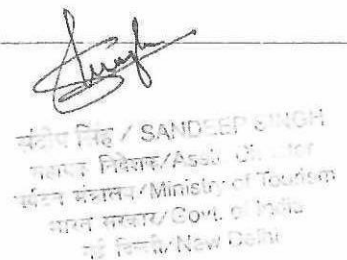 संदीप सिंह / SANDEEP SINGH
सहायक निदेशक/Asstt. Director
पर्यटन मंत्रालय/Ministry of Tourism
भारत सरकार/Govt. of India
नई दिल्ली/New Delhi